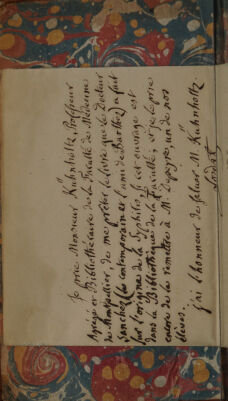 Je prie Monsieur Kühnholtz, Professeur
Agrégé et Bibliothécaire de la Faculté de Médecine
de Montpellier, de me prêter le livre que le Docteur
Sanchez (le contemporain et l'ami de Barthez) a fait
sur l'origine de la Syphilis, si cet ouvrage est
dans la Bibliothèque de la Faculté, et je le prie
encore de le remettre à M. un de nos
élèves.
J'ai l'honneur de saluer M. Kühnholtz.
Lordat